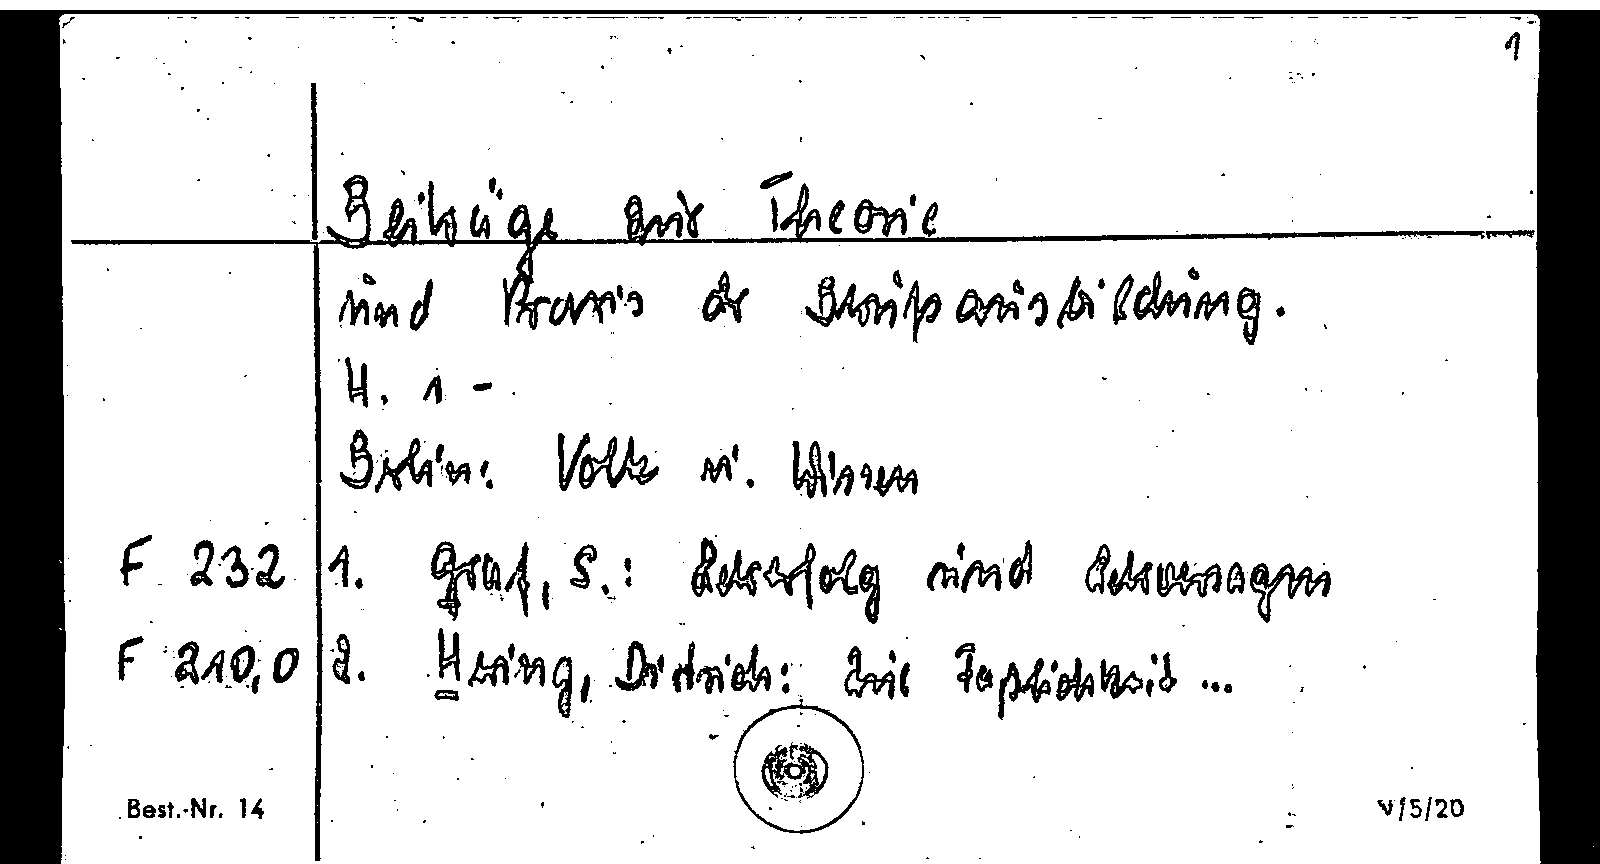 1
Beiträge zur Theorie
und Praxis der Berufsausbildung.
H. 1 -
Berlin: Volk u. Wissen
F 232 1. Graf, S.: Lehrerfolg und Lehrversagen
F 210,0 2. Hering, Dietrich: Zur Faßlichkeit ...
Best.-Nr. 14 V/5/20